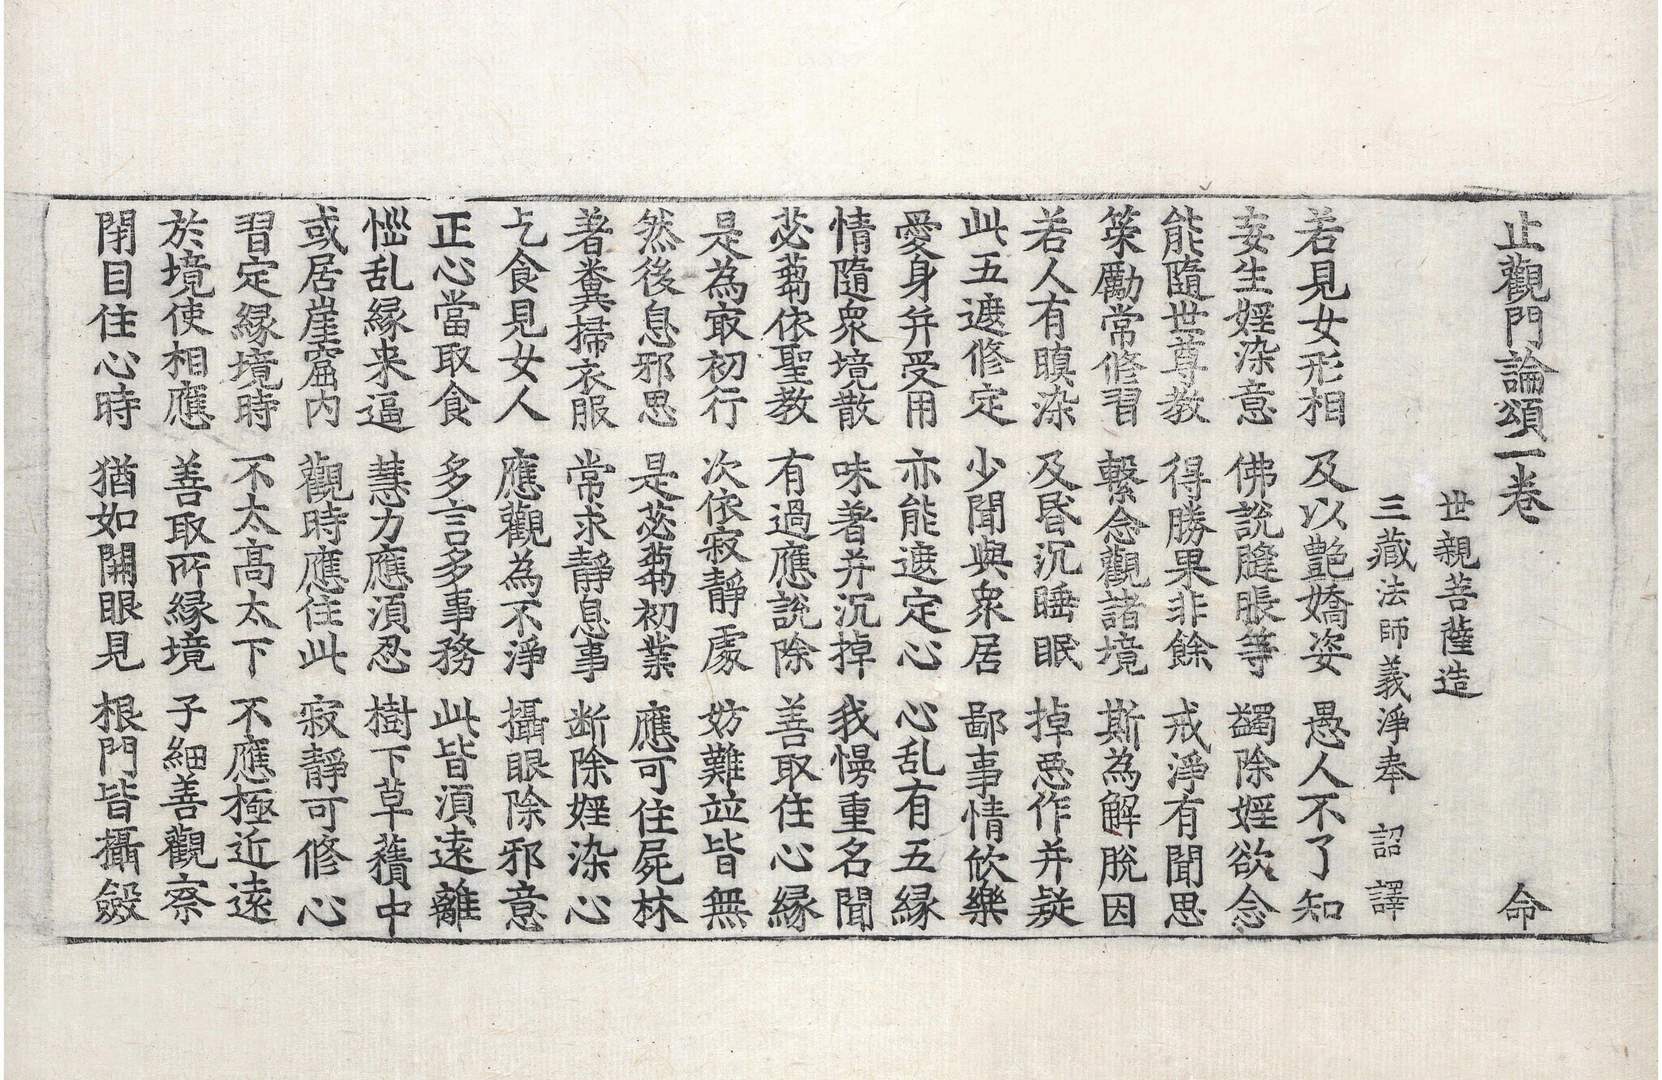 止觀門論頌一卷 命
世親菩薩造
三藏法師義淨奉 詔 譯
若見女形相 及以艷嬌姿 愚人不了知
妄生婬染意 佛說膖脹等 蠲除婬欲念
能隨世尊教 得勝果非餘 戒淨有聞思
策勵常修習 繫念觀諸境 斯為解脫因
若人有瞋染 及昏沉睡眠 掉惡作并疑
此五遮修定 少聞與衆居 鄙事情欣樂
愛身并受用 亦能遮定心 心乱有五緣
情隨衆境散 味著并沉掉 我慢重名聞
苾蒭依聖教 有過應說除 善取住心緣
是為㝡初行 次依寂靜處 妨難竝皆無
然後息邪思 是苾蒭初業 應可住屍林
著糞掃衣服 常求靜息事 断除婬染心
乞食見女人 應觀為不淨 攝眼除邪意
正心當取食 多言多事務 此皆湏遠離
惱乱緣来逼 慧力應湏忍 樹下草𧂐中
或居崖窟内 觀時應住此 寂靜可修心
習定緣境時 不太高太下 不應極近遠
於境使相應 善取所緣境 子細善觀察
閉目住心時 猶如開眼見 根門皆攝斂